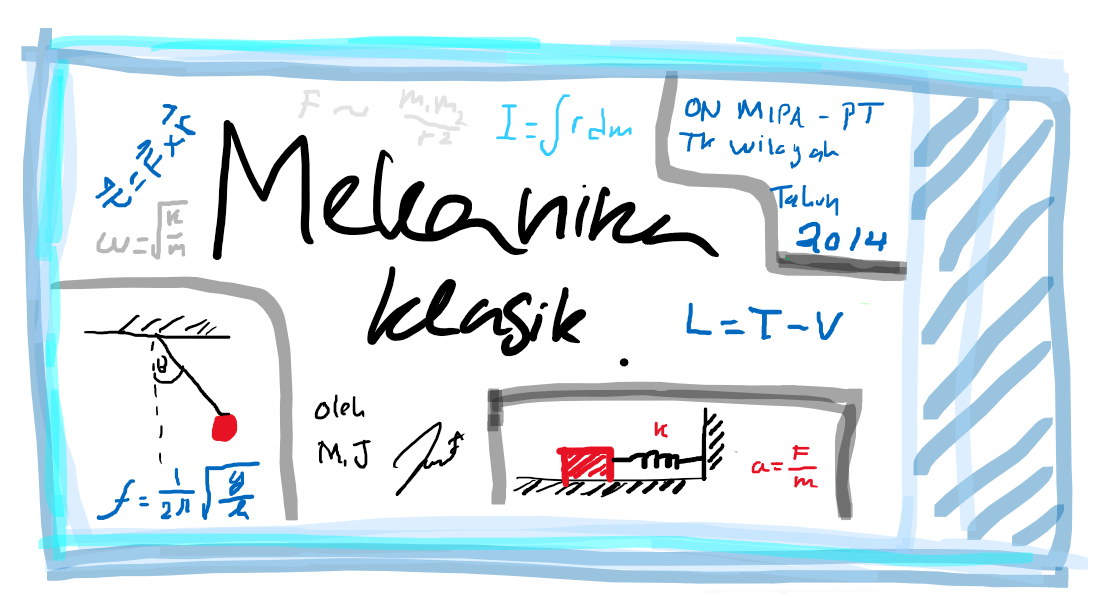 τ = F × r
F ~ m₁m₂/r²
I = ∫ r dm
ON MIPA - PT
Tk wilayah
Tahun
2014
ω = √(k/m)
Mekanika
klasik.
L = T - V
θ
f = 1/2π √(g/l)
oleh
M.J
k
a = F/m